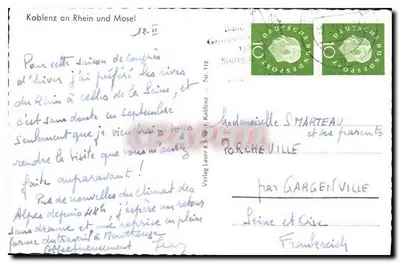 Koblenz an Rhein und Mosel
12.II
Pour cette saison de congrès
d'hiver j'ai préféré les rives
du Rhin à celles de la Seine, et
c'est sans doute en septembre
seulement que je viendrai vous
rendre la visite que vous m'aviez
faite auparavant!
Pas de nouvelles du climat des
Alpes depuis 48h, j'espère un retour
sans drame et une reprise en pleine
forme du travail à
Affectueusement
Verlag Lauer & Koblenz - Nr. 112
DEUTSCHE BUNDESPOST
10
DEUTSCHE BUNDESPOST
10
Mademoiselle S MARTEAU
et ses parents
PORCHEVILLE
par GARGENVILLE
Seine et Oise
Frankreich